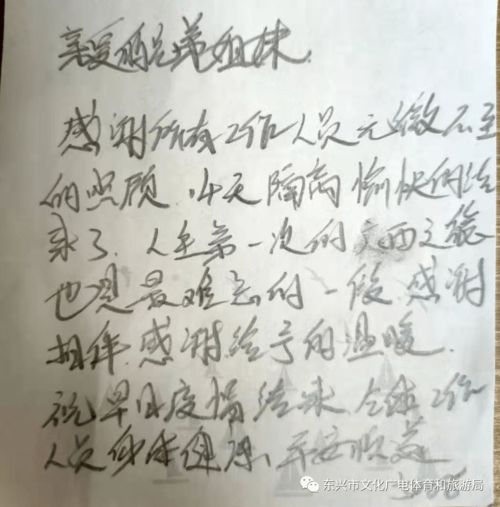 亲爱的兄弟姐妹
感谢所有工作人员无微不至
的照顾,14天隔离愉快的结
束了.人生第一次的广西之旅
也是最难忘的一段.感谢
相伴.感谢给予的温暖.
祝早日疫情结束 全体工作
人员身体健康、平安顺遂
东兴市文化广电体育和旅游局